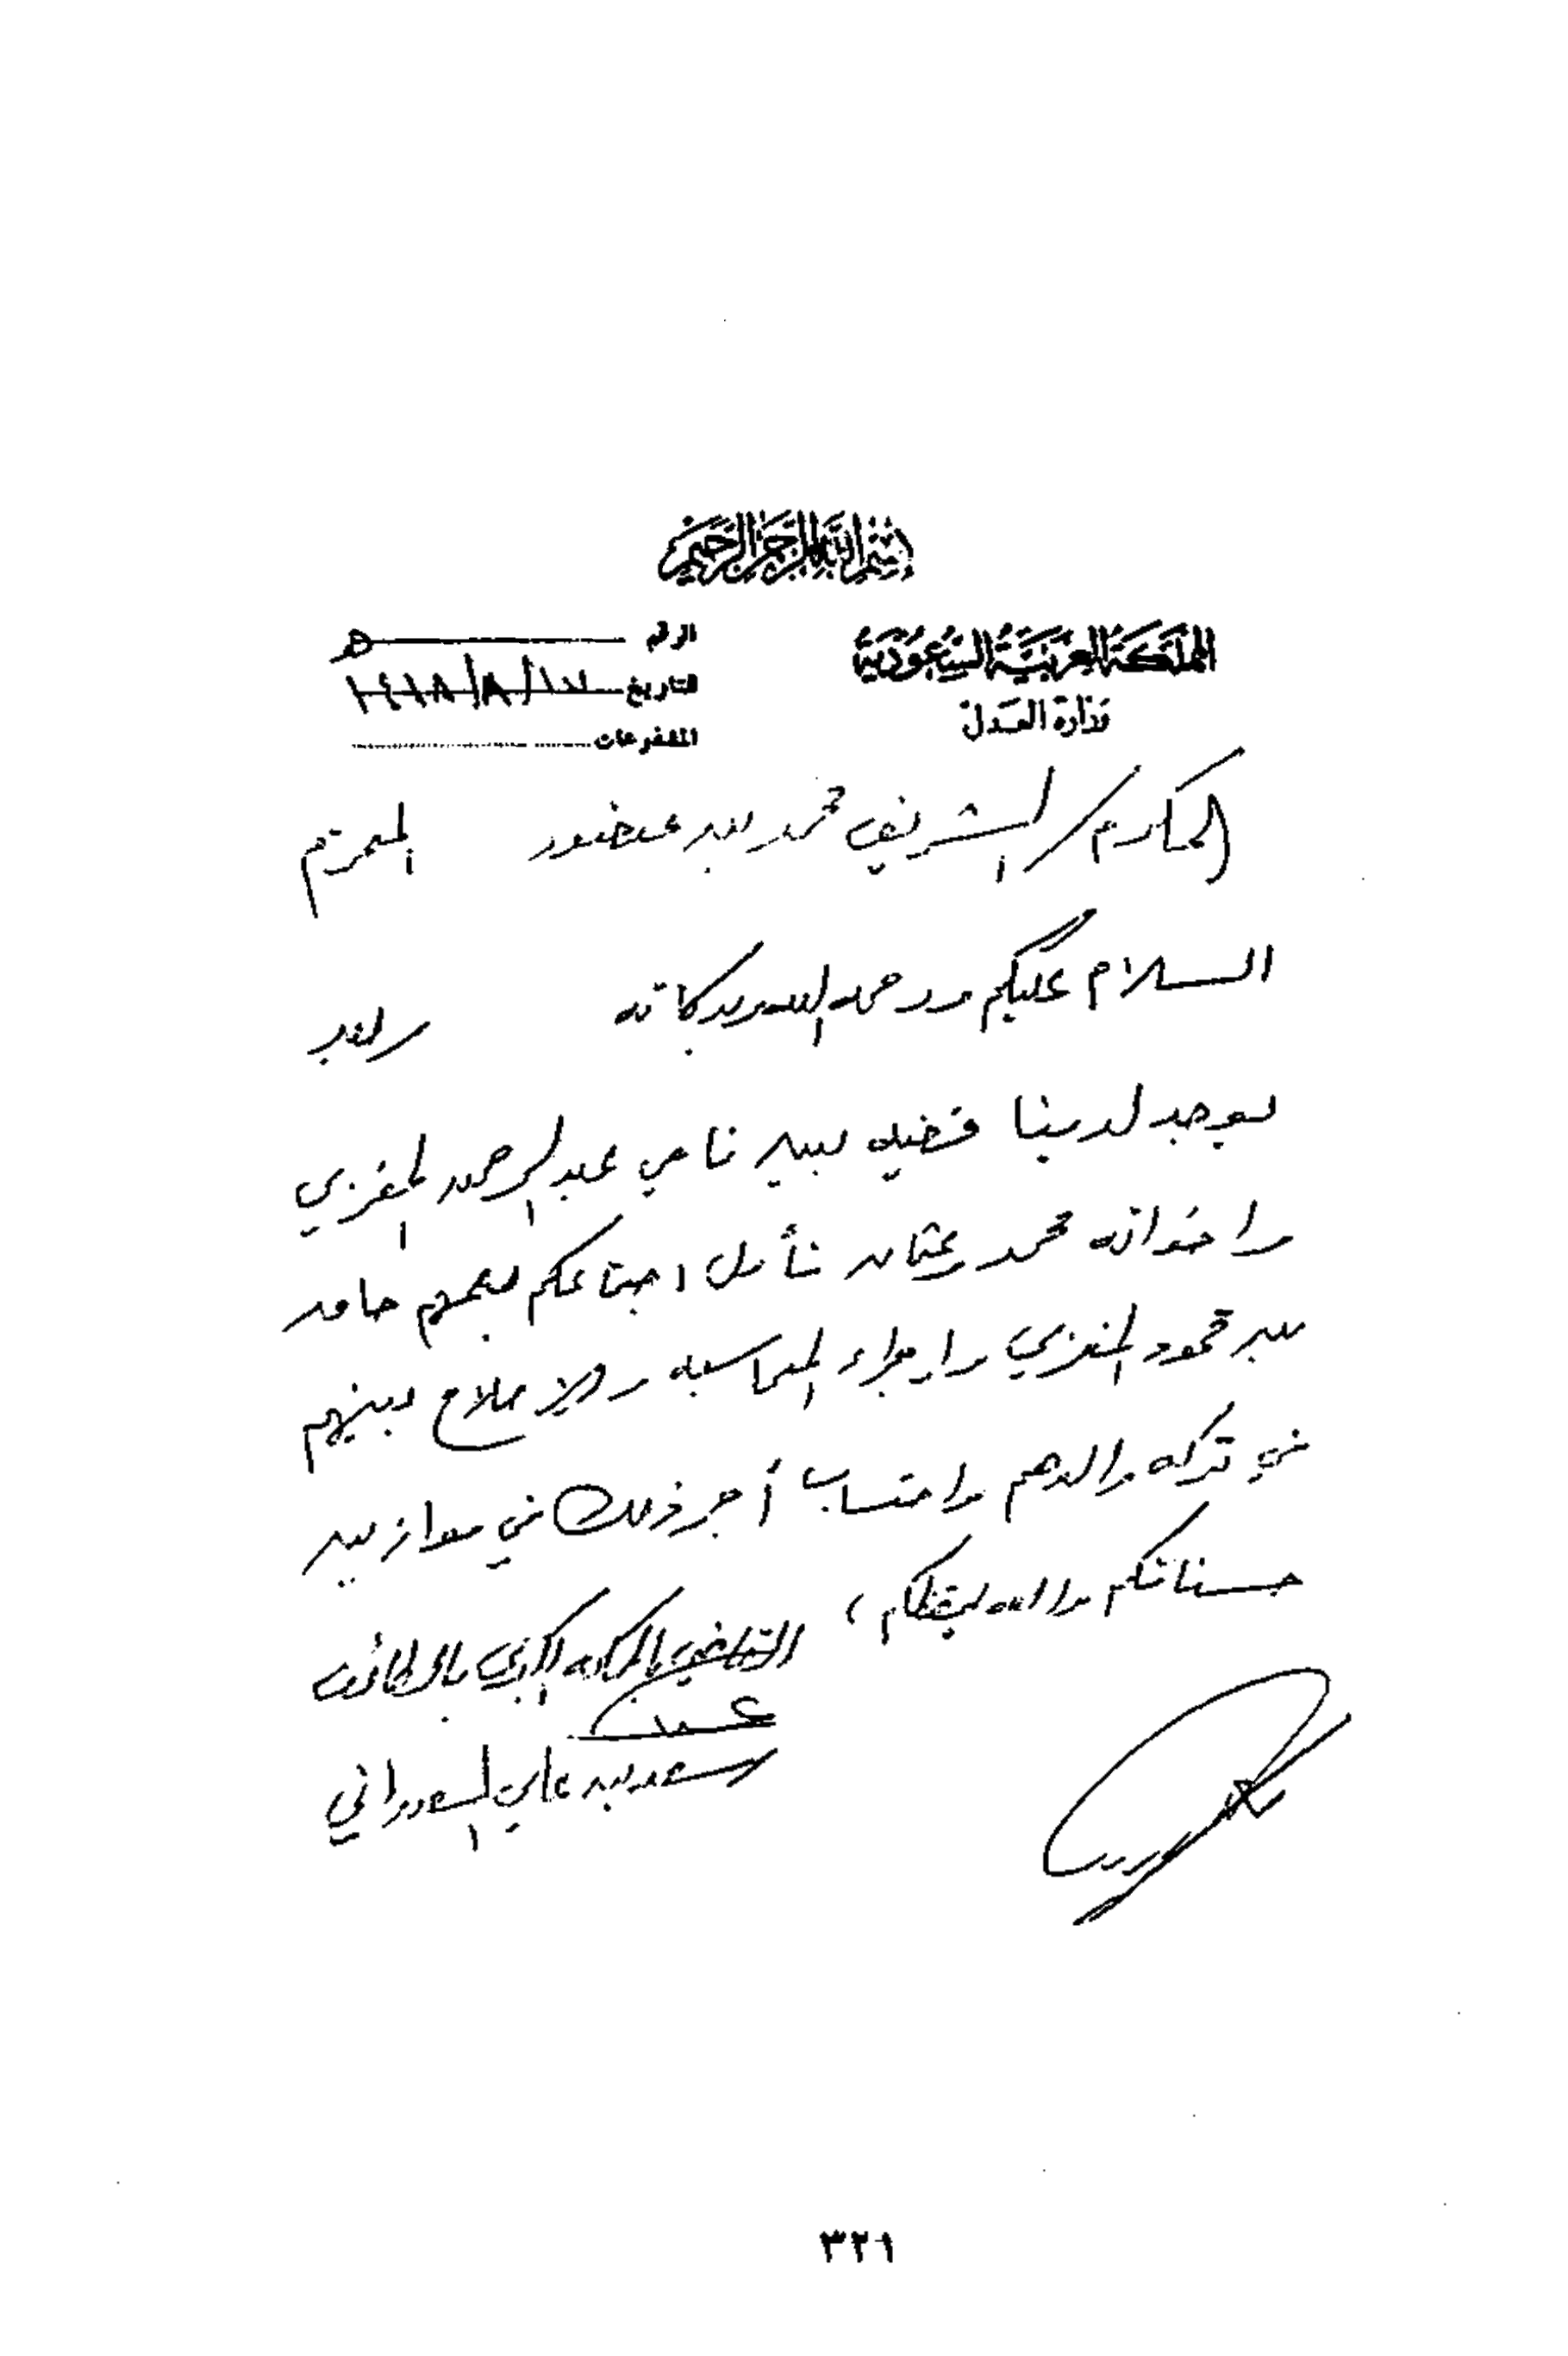 بسم الله الرحمن الرحيم
المملكة العربية السعودية
وزارة العدل
الرقم
التاريخ ١٤١٨/٨/١٧ هـ
المشفوعات
المكرم / الشريف محمد بن منصور المحترم
السلام عليكم ورحمة الله وبركاته وبعد
يوجد لدينا قضيه بين ناجي عبدالرحمن المغربي
واخوانه محمد وعثمان نأمل اجتماعكم بعمهم حامد
بن محمود المغربي واجراء المحاسبه والاصلاح بينهم
في تركه والدهم واحتساب أجر ذلك في موازين
حسناتكم والله يحفظكم ،
القاضي بالمحكمه الكبرى بالطائف
سعد بن علي
٣٢١